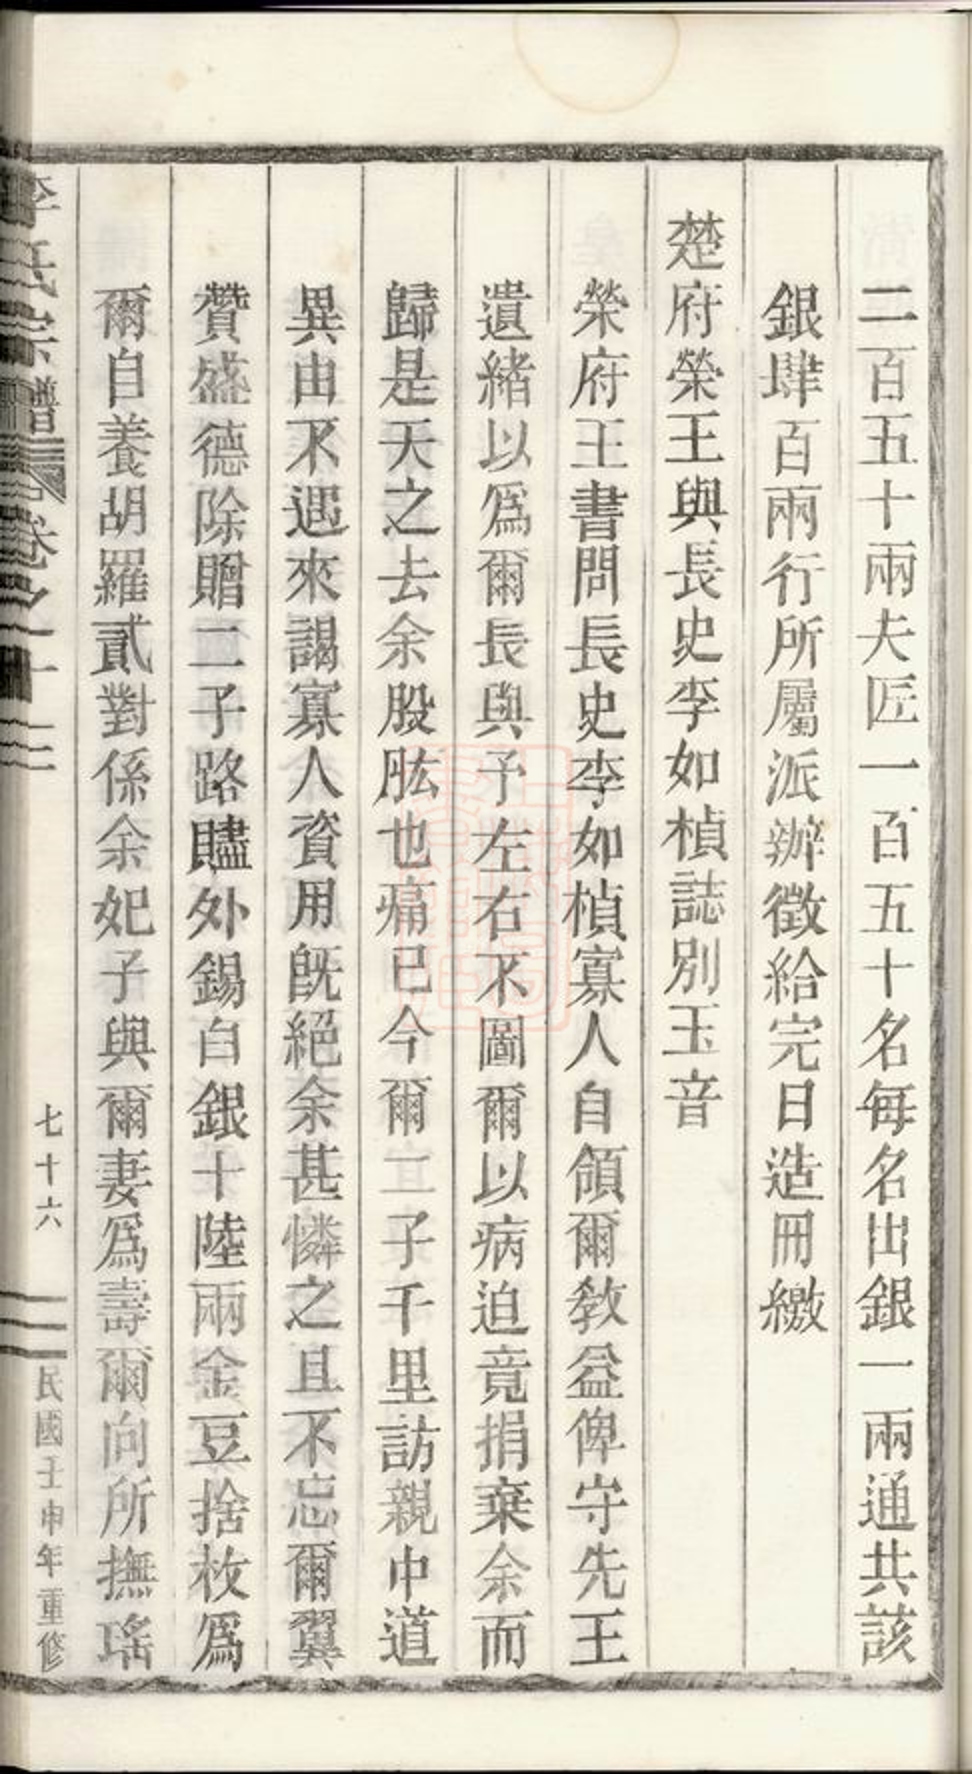 二百五十兩夫匠一百五十名每名出銀一兩通共該
銀肆百兩行所屬派辦徵給完日造冊繳
楚府榮王與長史李如楨誌別玉音
榮府王書問長史李如楨寡人自領爾教益俾守先王
遺緒以爲爾長與予左右不圖爾以病迫竟捐棄余而
歸是天之去余股肱也痛已今爾二子千里訪親中道
異由不遇來謁寡人資用既絕余甚憐之且不忘爾翼
贊盛德除贈二子路贐外錫白銀十陸兩金豆捨枚爲
爾自養胡羅貳對係余妃子與爾妻爲壽爾向所撫瑤
李氏宗譜
卷之十三
七十六
民國壬申年重修